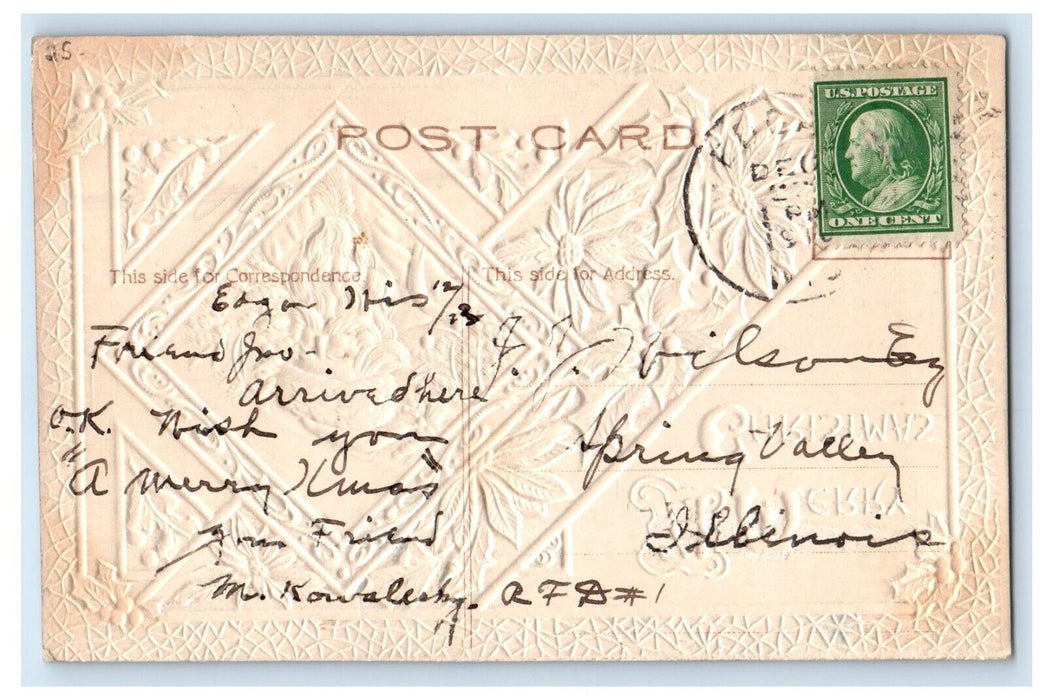 25-
POST CARD
U.S. POSTAGE
ONE CENT
DEC
This side for Correspondence.
Edgar Wis 12/23
Friend Jno-
arrived here
O.K. Wish you
"A Merry Xmas"
your Friend
M. Kowalesky.
This side for Address.
J. J. Wilson Esq
Spring Valley
Illinois
RFD#1
A MERRY
CHRISTMAS